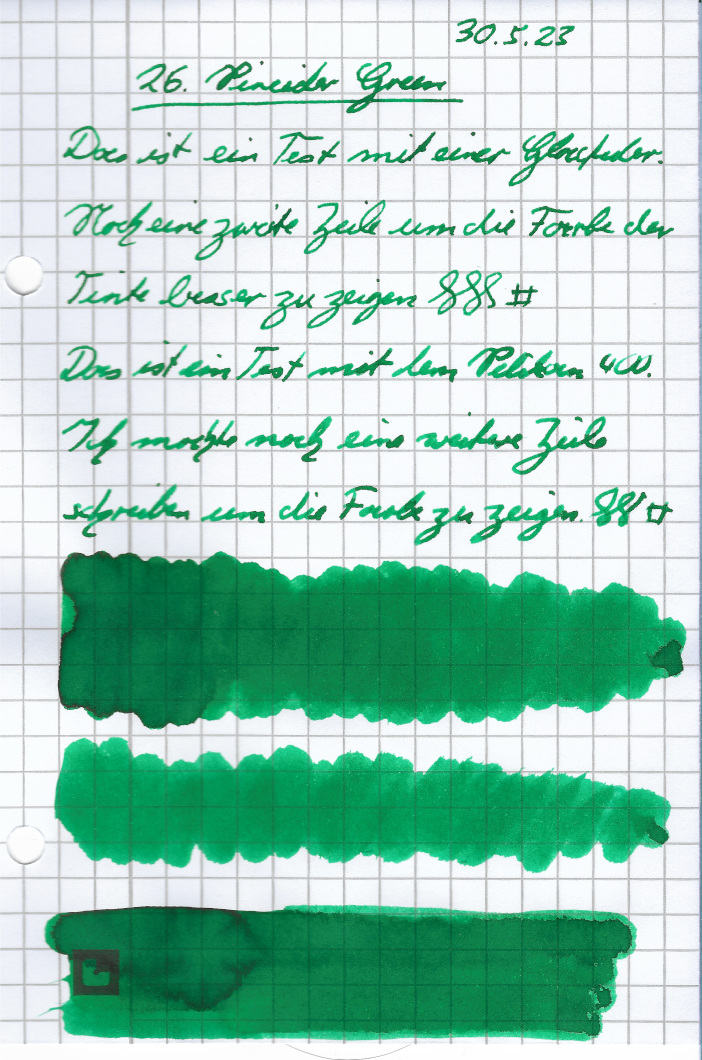 30.5.23
26. Pineider Green
Das ist ein Test mit einer Glasfeder.
Noch eine zweite Zeile um die Farbe der
Tinte besser zu zeigen §§§ #
Das ist ein Test mit dem Pelikan 400.
Ich möchte noch eine weitere Zeile
schreiben um die Farbe zu zeigen. §§ #